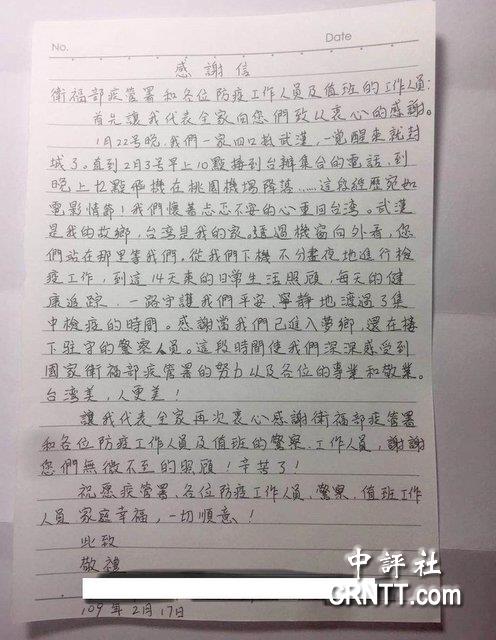 No.
Date
感謝信
衛福部疾管署和各位防疫工作人員及值班的工作人員:
首先讓我代表全家向您們致以衷心的感謝。
1月22号晚,我們一家四口抵武漢,一覺醒來就封
城了。直到2月3号早上10點接到台辦集合的電話,到
晚上12點飛機在桃園機場降落……這段經歷宛如
電影情節!我們懷著忐忑不安的心重回台湾。武漢
是我的故鄉,台湾是我的家。透過機窗向外看,您
們站在那里等我們,從我們下機不分晝夜地進行檢
疫工作,到這14天來的日常生活照顧,每天的健
康追踪,一路守護我們平安、寧靜地渡過了集
中檢疫的時間。感謝當我們已進入夢鄉,還在樓
下駐守的警察人員。這段時間使我們深深感受到
國家衛福部疾管署的努力以及各位的專業和敬業。
台湾美,人更美!
讓我代表全家再次衷心感謝衛福部疾管署
和各位防疫工作人員及值班的警察、工作人員,謝謝
您們無微不至的照顧!辛苦了!
祝愿疾管署、各位防疫工作人員、警察、值班工作
人員家庭幸福,一切順意!
此致
敬禮
109年2月17日
中評社
CRNTT.com